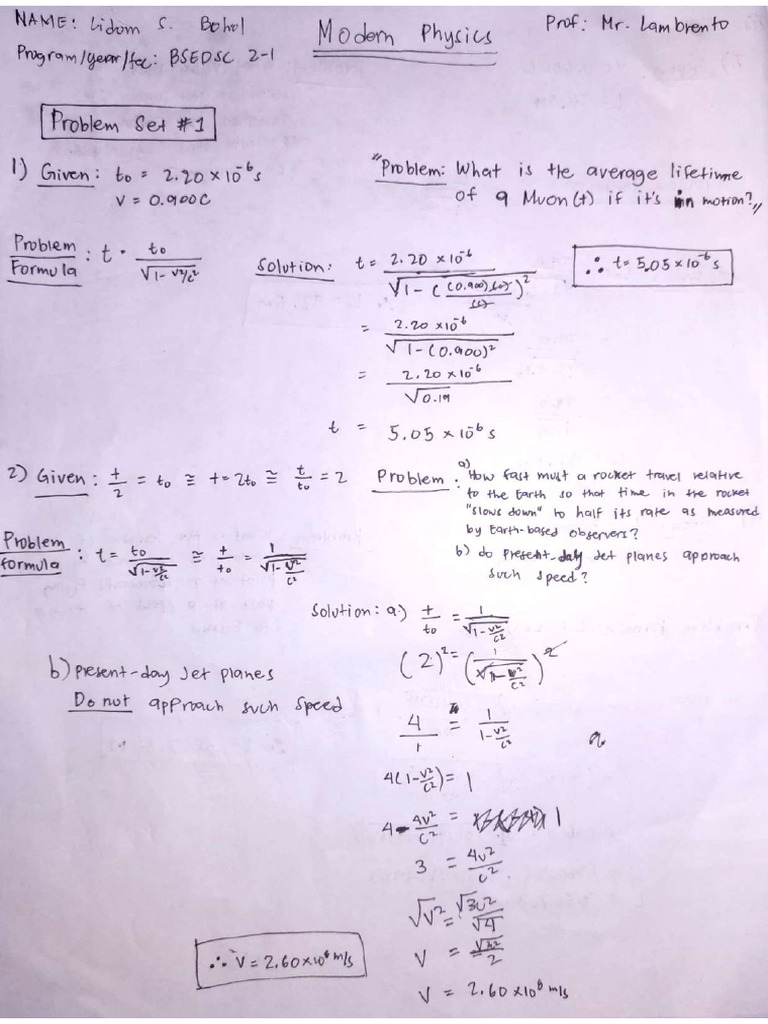 NAME: Lidom S. Bohol
Modern Physics
Prof: Mr. Lambrento
Program/year/sec: BSEDSC 2-1
Problem Set #1
1) Given: to = 2.20 × 10⁻⁶ s
V = 0.900C
"Problem: What is the average lifetime
of a Muon (t) if it's in motion?"
Problem Formula : t = to / √1 - v²/c²
Solution: t = 2.20 × 10⁻⁶ / √1 - ((0.900)(c) / (c))²
= 2.20 × 10⁻⁶ / √1 - (0.900)²
= 2.20 × 10⁻⁶ / √0.19
t = 5.05 × 10⁻⁶ s
∴ t = 5.05 × 10⁻⁶ s
2) Given: t/2 = to ≅ t = 2to ≅ t/to = 2
Problem: a) How fast must a rocket travel relative
to the Earth so that time in the rocket
"slows down" to half its rate as measured
by Earth-based observers?
b) do present-day Jet planes approach
such speed?
Problem formula : t = to / √1 - v²/c² ≅ t/to = 1 / √1 - v²/c²
Solution: a.) t/to = 1 / √1 - v²/c²
(2)² = (1 / √1 - v²/c²)²
4/1 = 1 / 1 - v²/c²
a
4(1 - v²/c²) = 1
4 - 4v²/c² = 1
3 = 4v²/c²
√v² = √3c² / √4
V = √3c² / 2
V = 2.60 × 10⁸ m/s
b) present-day Jet planes
Do not approach such speed
∴ V = 2.60 × 10⁸ m/s